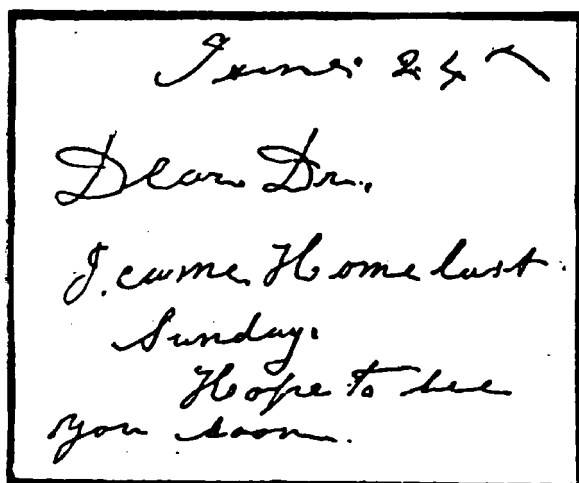 June 24
Dear Dr.
I came Home last
Sunday.
Hope to see
you soon.